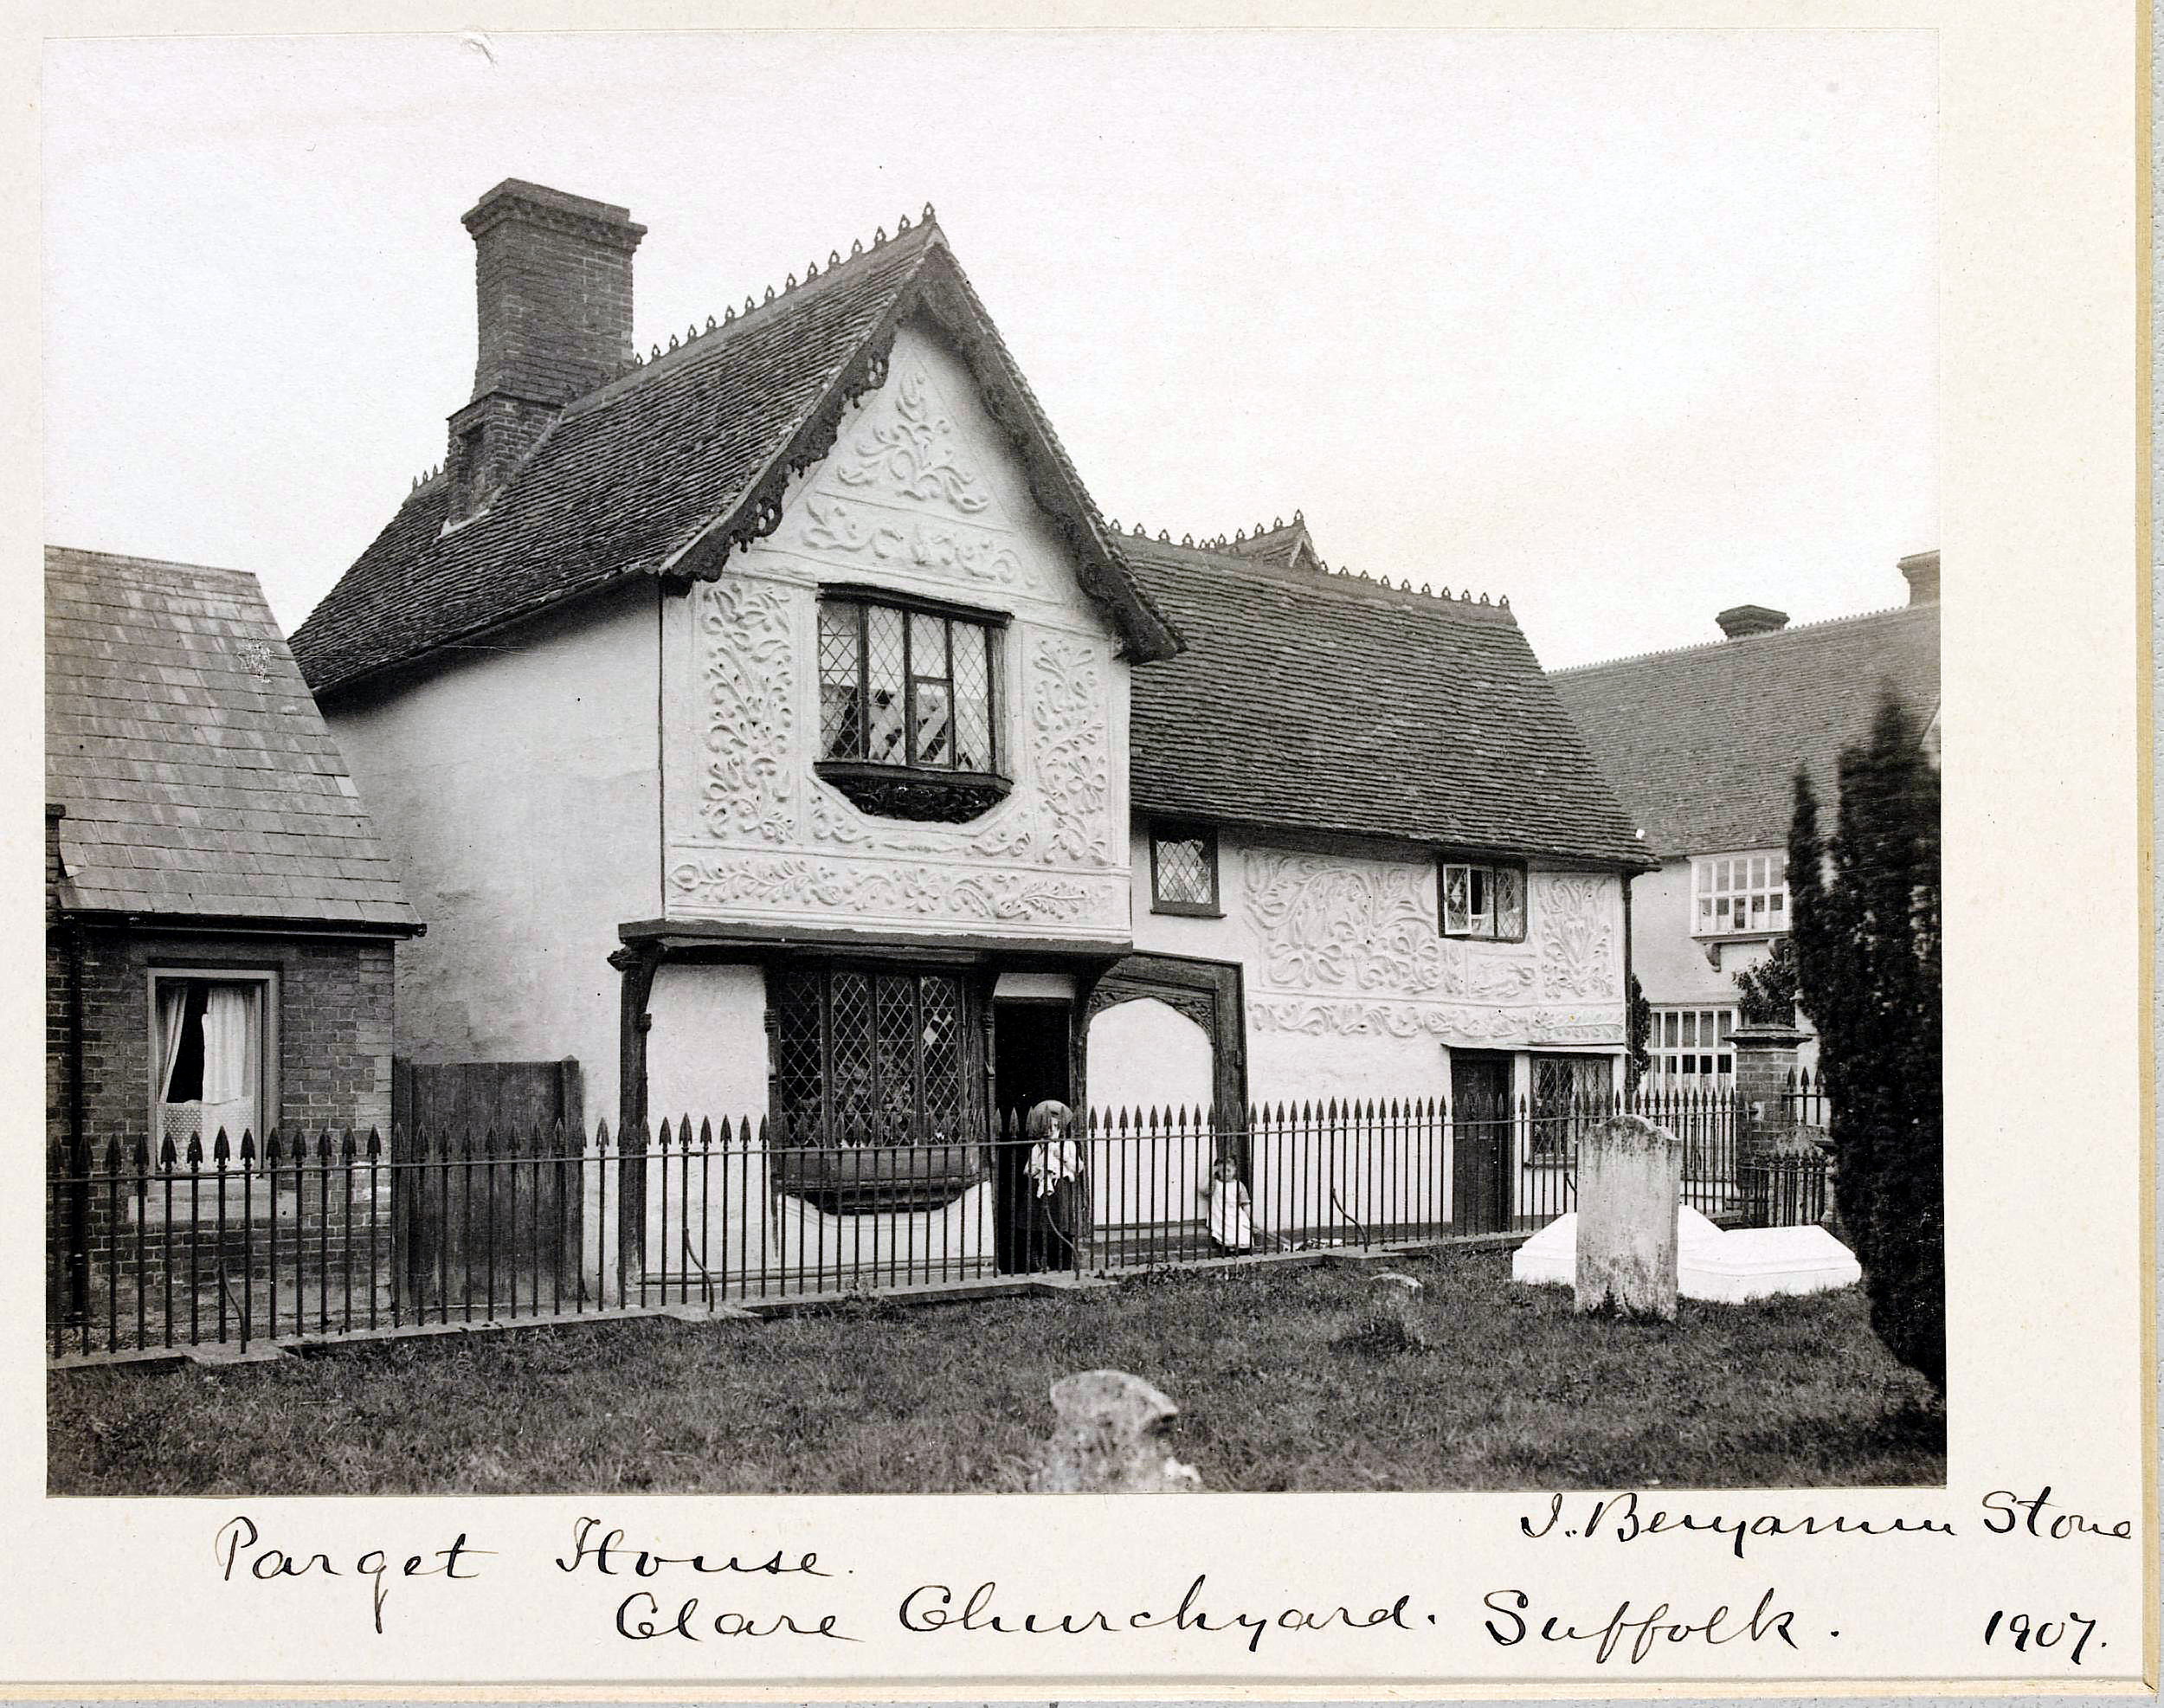 J. Benjamin Stone
Parget House.
Clare Churchyard. Suffolk. 1907.